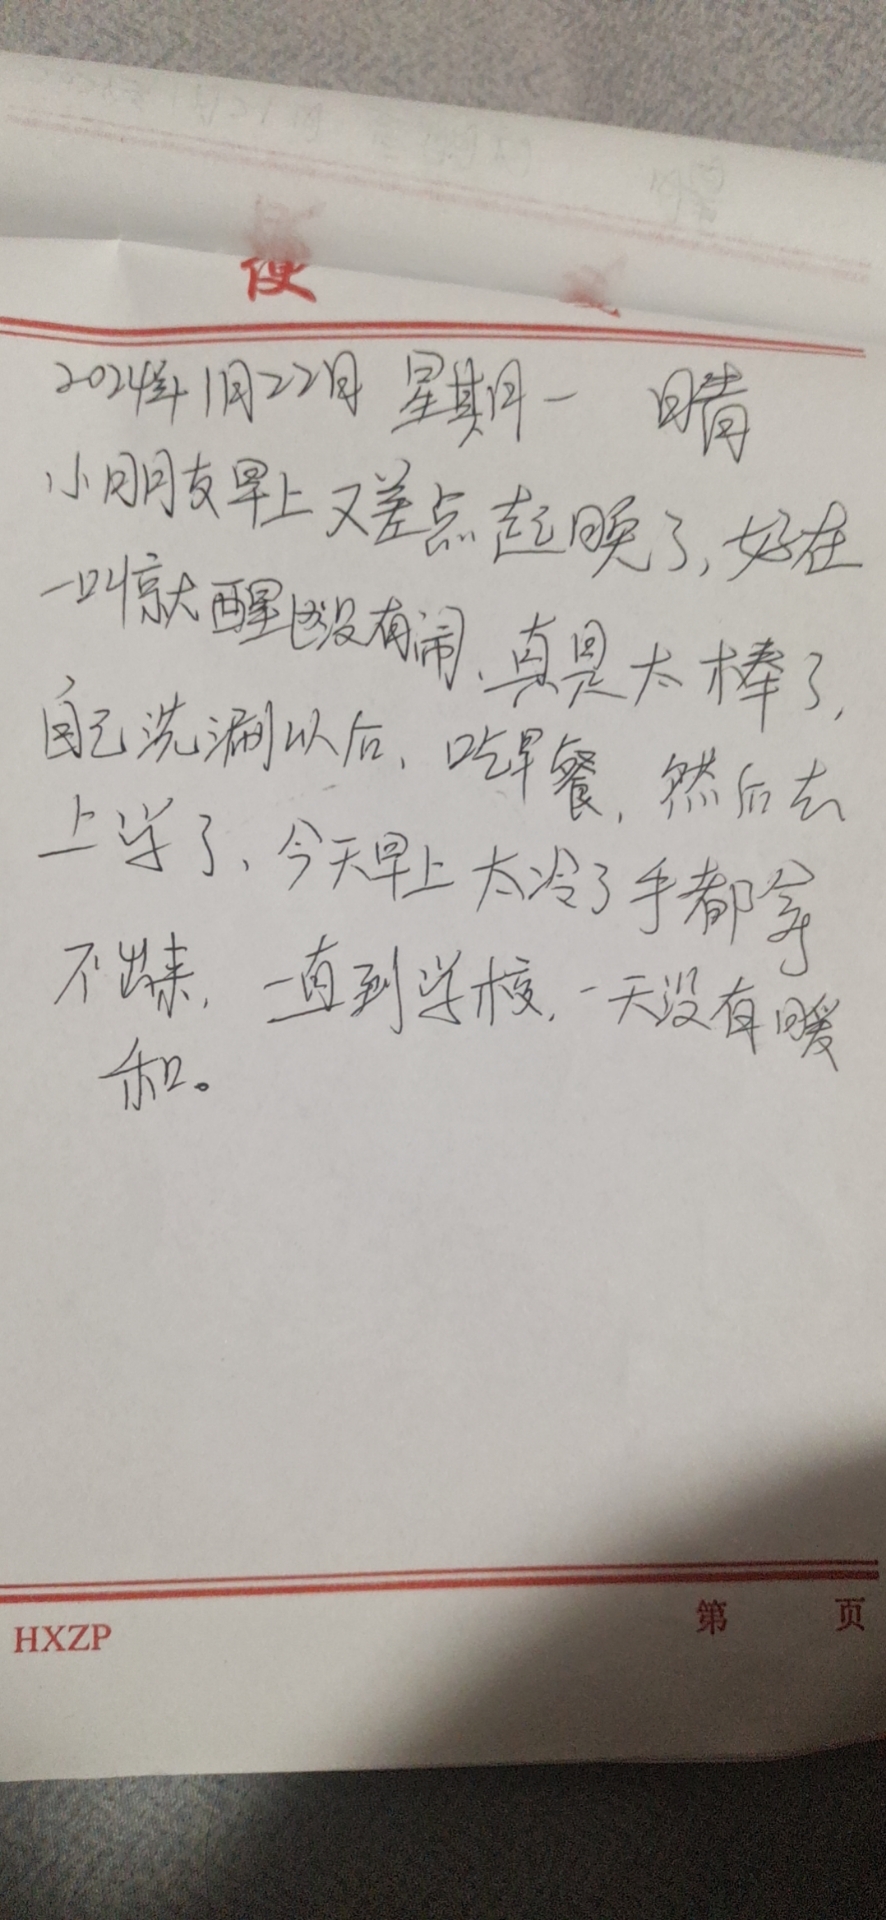 便
2024年1月22日 星期一 晴
小朋友早上又差点起晚了,好在
一叫就醒也没有闹、真是太棒了,
自己洗漱以后、吃早餐,然后去
上学了、今天早上太冷了手都拿
不出来,一直到学校,一天没有暖
和。
HXZP 第 页